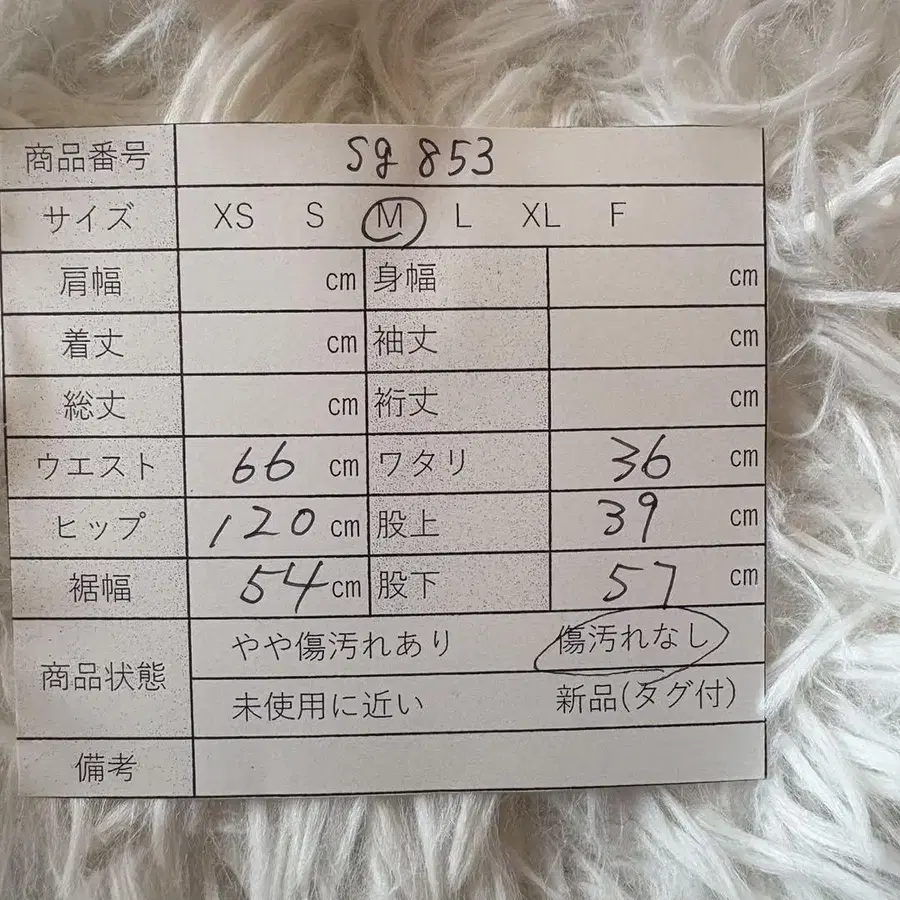 商品番号 sg 853
サイズ XS S M L XL F
肩幅 cm 身幅 cm
着丈 cm 袖丈 cm
総丈 cm 裄丈 cm
ウエスト 66 cm ワタリ 36 cm
ヒップ 120 cm 股上 39 cm
裾幅 54 cm 股下 57 cm
商品状態 やや傷汚れあり 傷汚れなし
未使用に近い 新品(タグ付)
備考